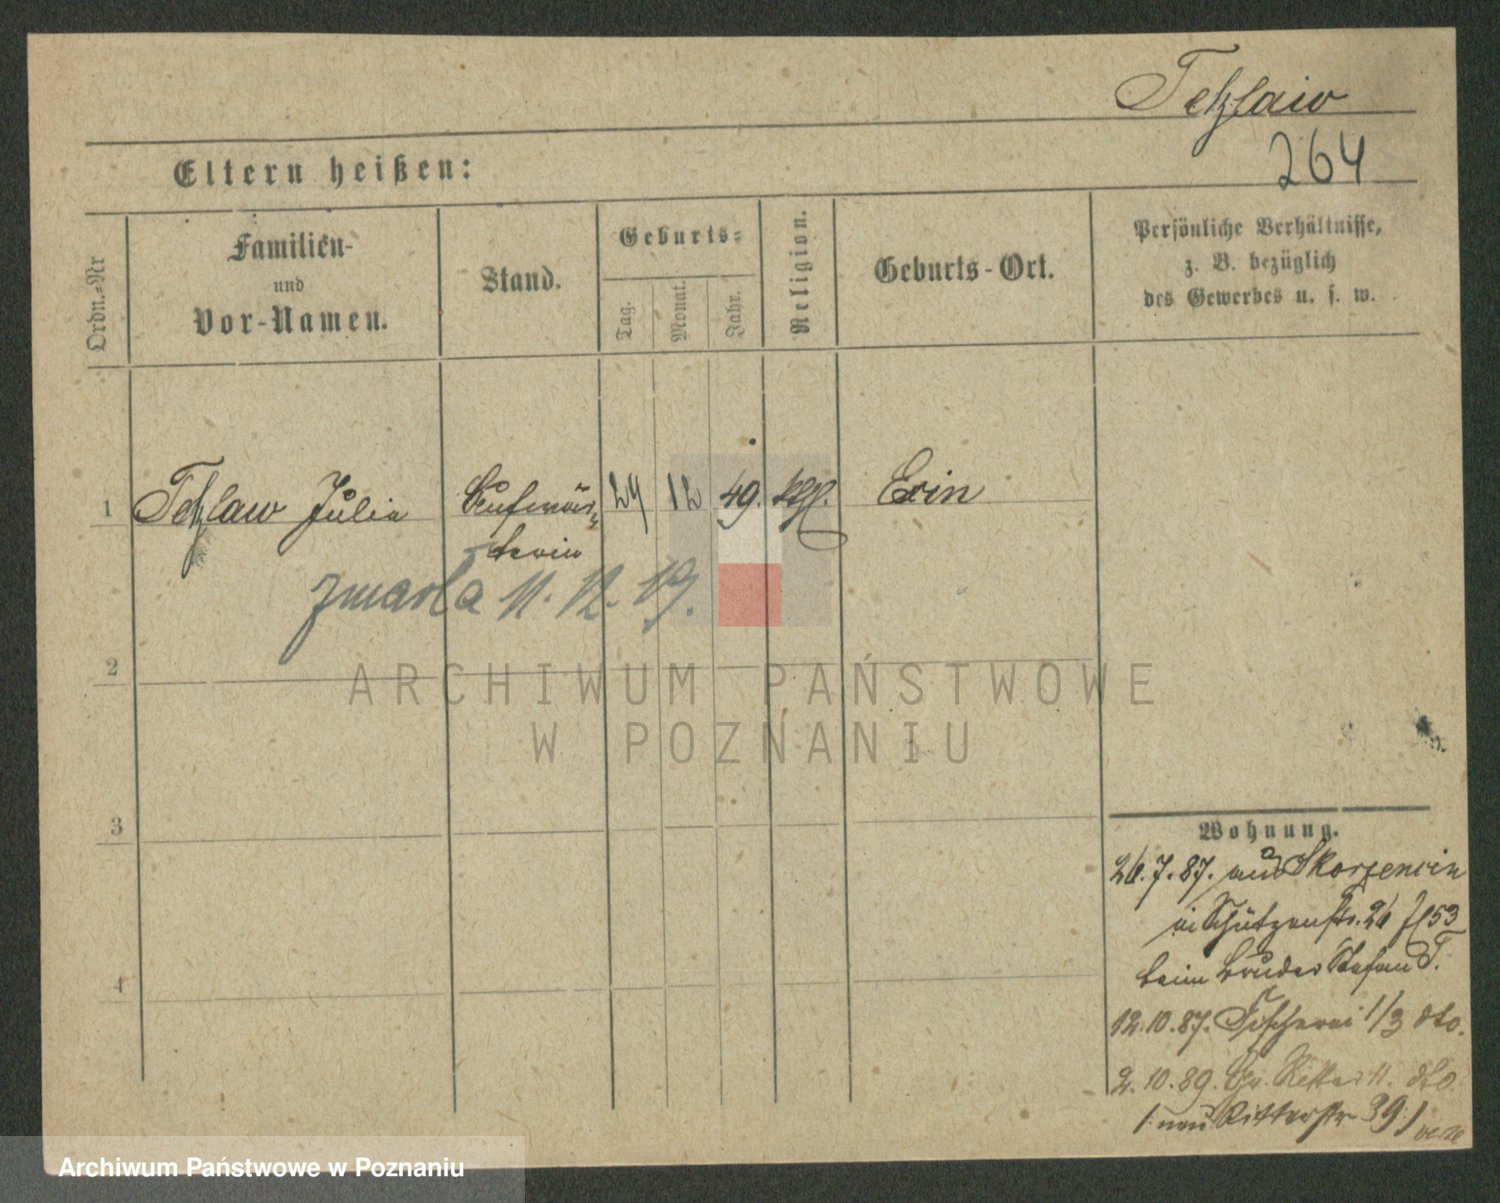 Tetzlaw
264
Eltern heißen:
Ordn.-Nr
Familien-
und
Vor-Namen.
Stand.
Geburts-
Tag.
Monat.
Jahr.
Religion.
Geburts-Ort.
Persönliche Verhältnisse,
z. B. bezüglich
des Gewerbes u. s. w.
1 Tetzlaw Julie Aufwär- 24 12 49. kth. Exin
terin
zmarła 11. 12. 19.
2
ARCHIWUM PAŃSTWOWE
W POZNANIU
3
Wohnung.
26.7.87. aus Skorzencin
Schützenstr. 26 53
beim Bruder Stefan T.
4
12.10.87. Fischerei 1/3 dto.
2.10.89. Gr. Ritter 11. dto.
/: neu Ritterstr 39 :/
Archiwum Państwowe w Poznaniu